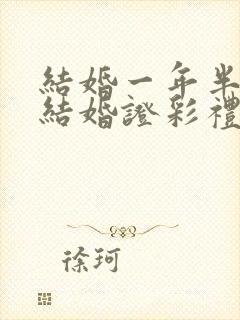 結婚一年半
結婚證彩禮
徐珂